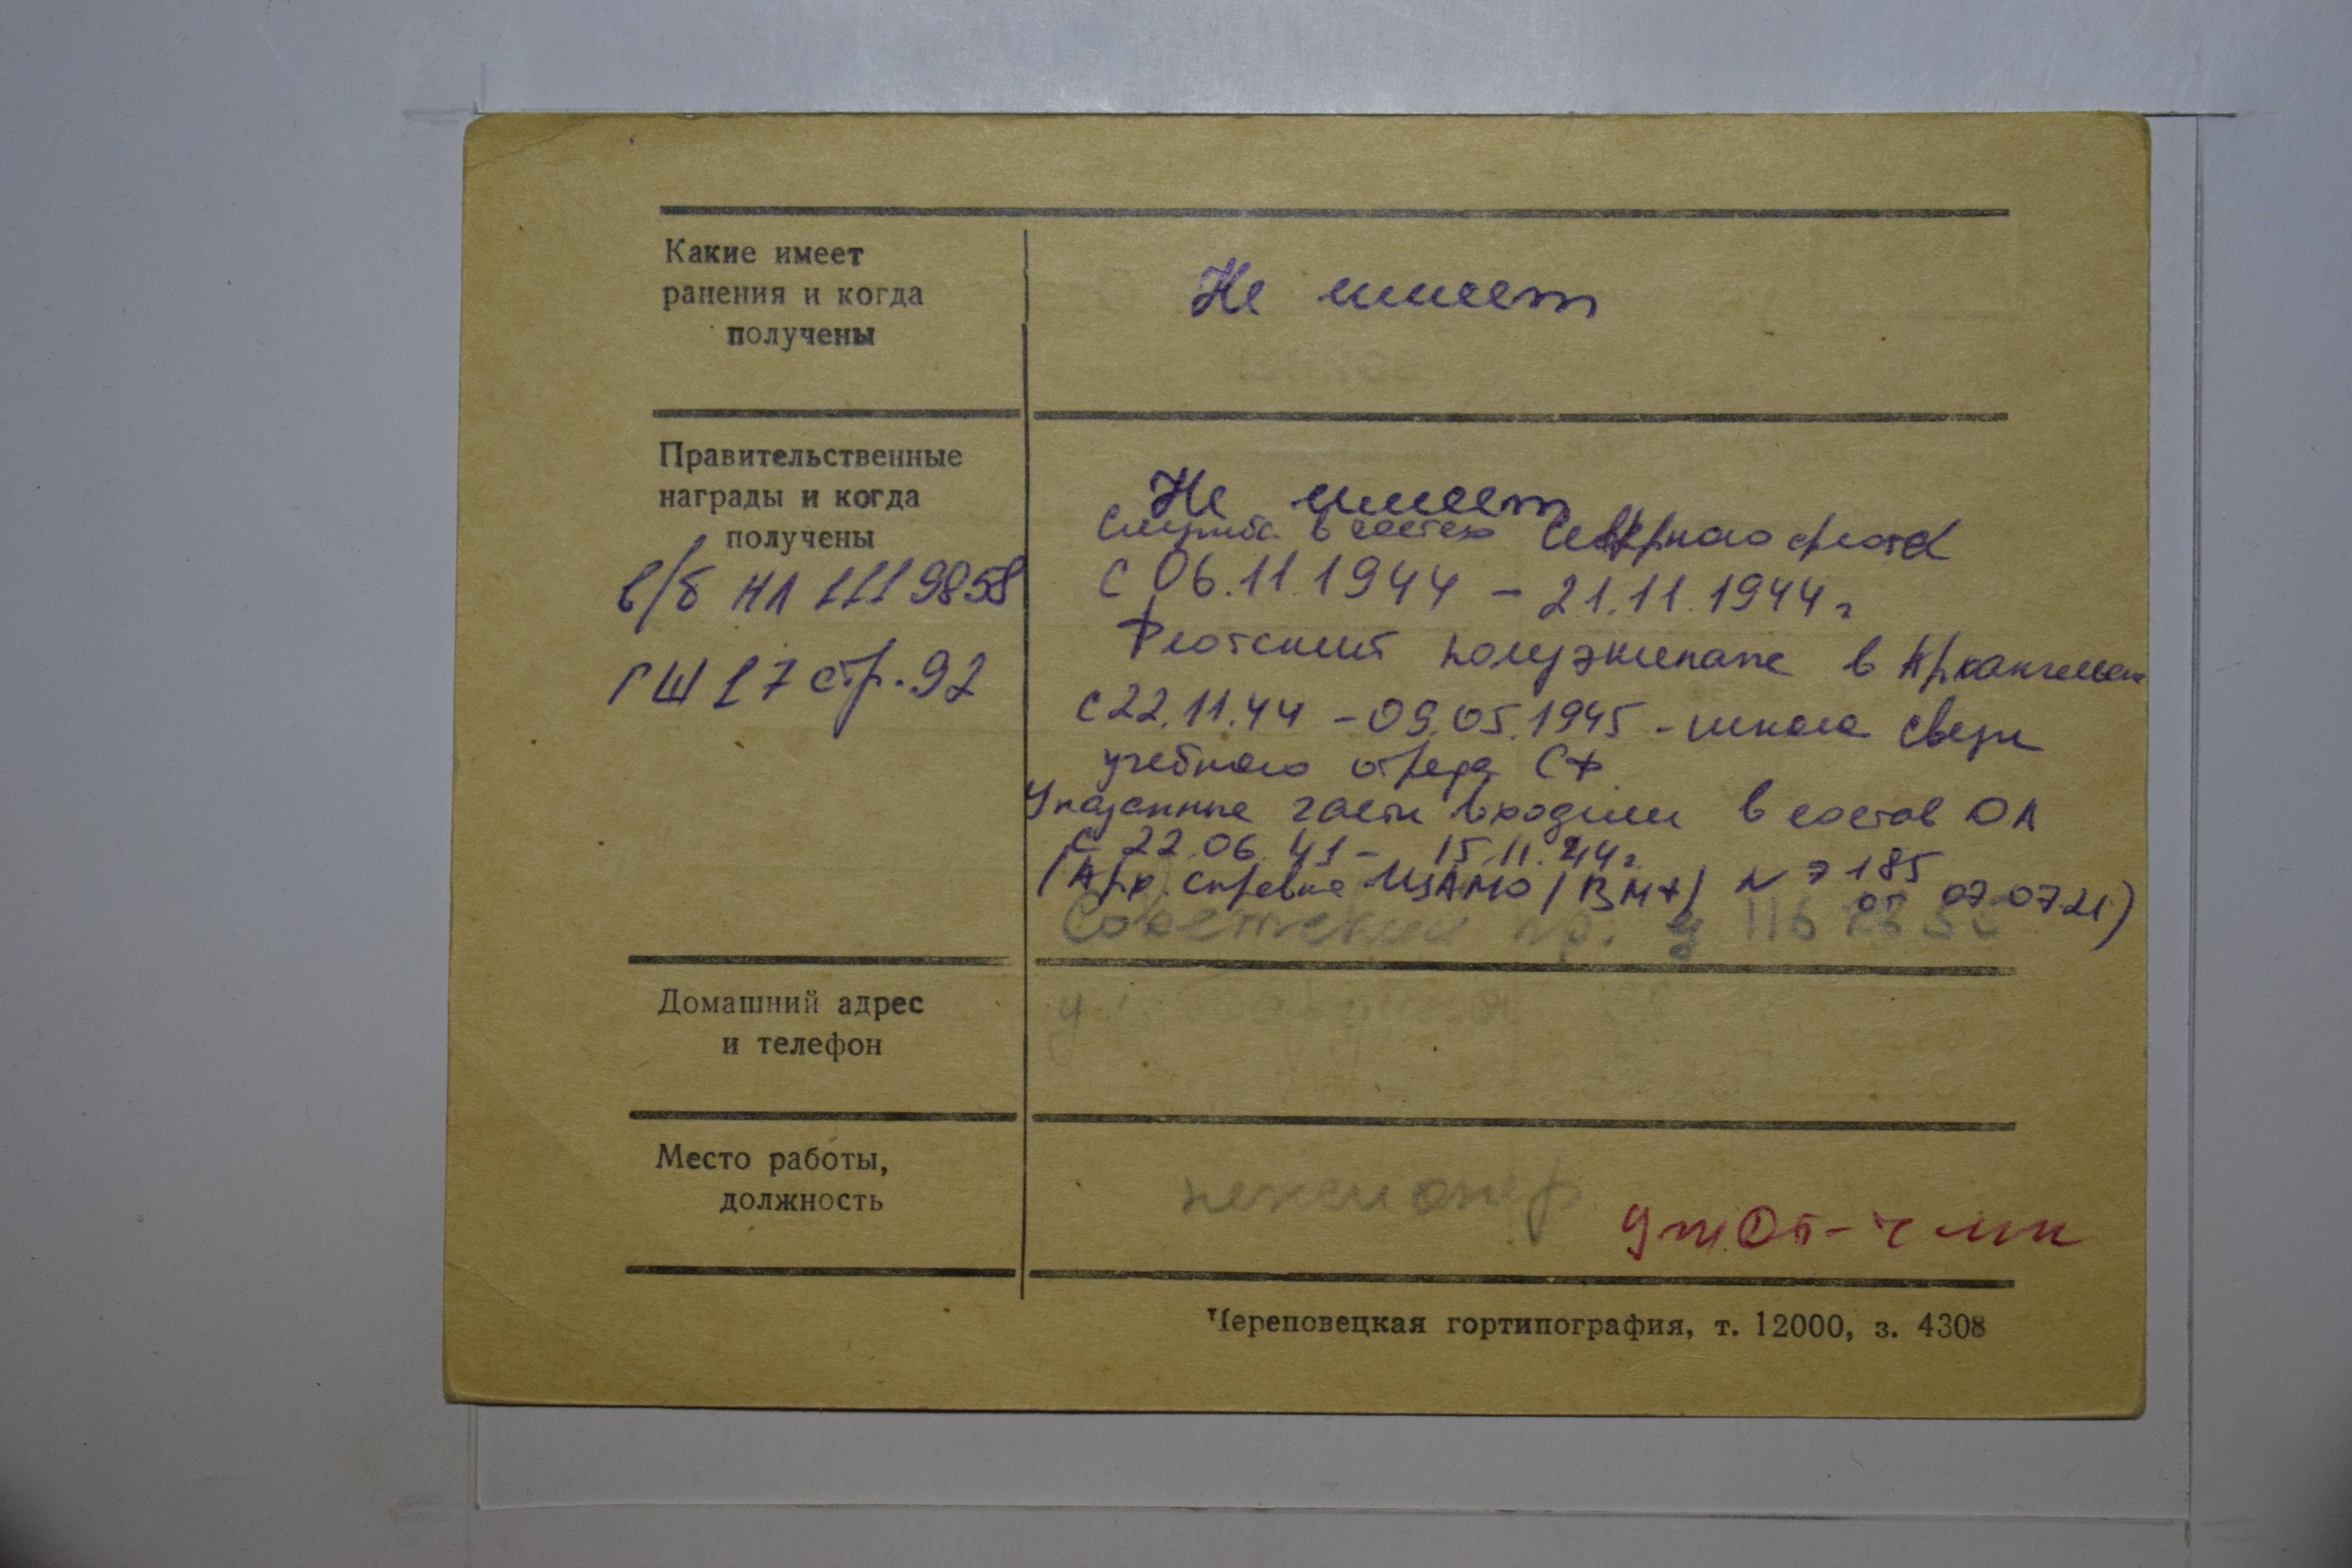 Какие имеет
ранения и когда
получены
Не имеет
Правительственные
награды и когда
получены
в/б НЛ 1119858
ГШ 17 стр. 92
Не имеет
Служил в частях Северного флота
с 06.11.1944 – 21.11.1944 г
Флотский полуэкипаж в Архангельске
с 22.11.44 – 09.05.1945 – школа связи
учебного отряда СФ
Указанные части входили в состав ДА
с 22.06.41 – 15.11.44 г.
(Арх. справка ЦАМО (ВМФ) N 7185
от 07.07.21)
Советский пр. 116
Домашний адрес
и телефон
Место работы,
должность
пенсионер
Череповецкая гортипография, т. 12000, з. 4308